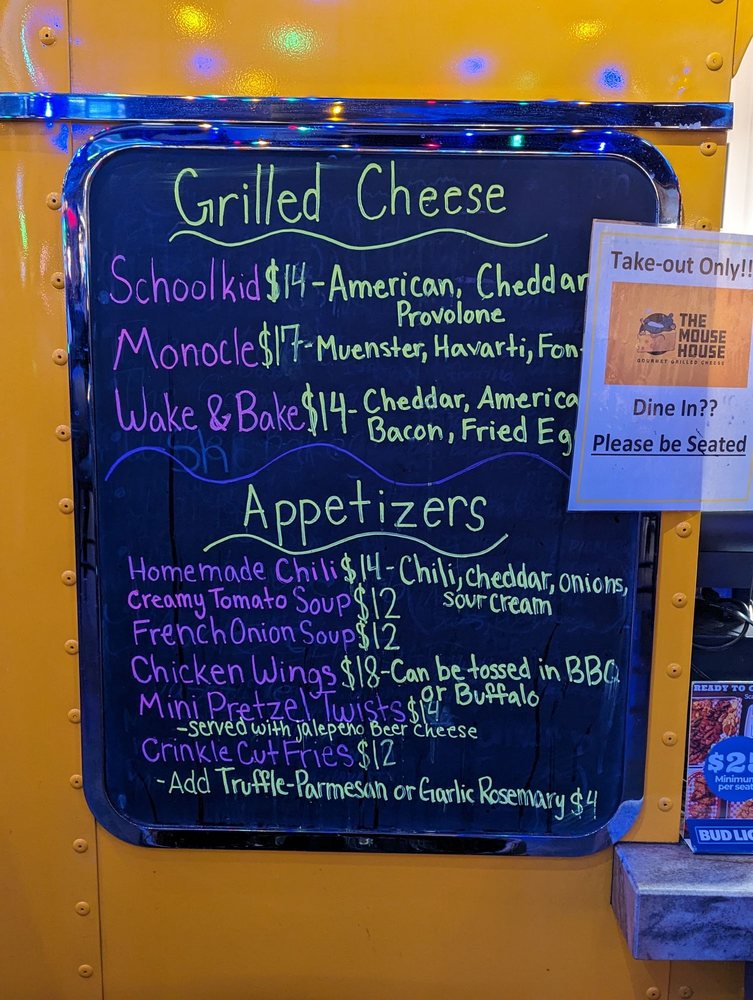 Grilled Cheese
Schoolkid $14 - American, Cheddar
Provolone
Monocle $17 - Muenster, Havarti, Fon
Wake & Bake $14 - Cheddar, America
Bacon, Fried Eg
Appetizers
Homemade Chili $14 - Chili, cheddar, onions,
sour cream
Creamy Tomato Soup $12
French Onion Soup $12
Chicken Wings $18 - Can be tossed in BBQ
or Buffalo
Mini Pretzel Twists $14
- served with jalepeno Beer cheese
Crinkle Cut Fries $12
- Add Truffle-Parmesan or Garlic Rosemary $4
Take-out Only!!
THE
MOUSE
HOUSE
GOURMET GRILLED CHEESE
Dine In??
Please be Seated
READY TO
$25
Minimum
per seat
BUD LIG